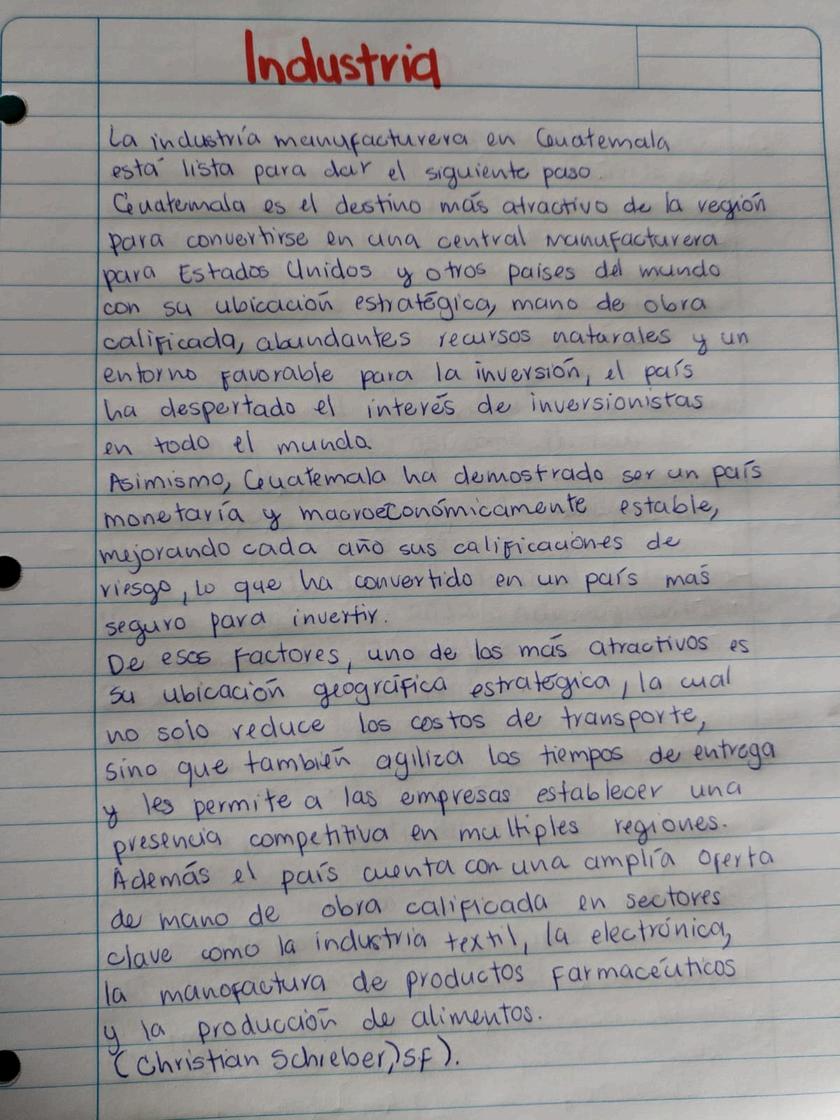 Industria
La industría manufacturera en Guatemala
está lista para dar el siguiente paso.
Guatemala es el destino más atractivo de la región
para convertirse en una central manufacturera
para Estados Unidos y otros paises del mundo
con su ubicación estratégica, mano de obra
calificada, abundantes recursos naturales y un
entorno favorable para la inversión, el país
ha despertado el interés de inversionistas
en todo el mundo.
Asimismo, Guatemala ha demostrado ser un país
monetaría y macroeconómicamente estable,
mejorando cada año sus calificaciones de
riesgo, lo que ha convertido en un país más
seguro para invertir.
De esos factores, uno de los más atractivos es
su ubicación geográfica estratégica, la cual
no solo reduce los costos de transporte,
sino que también agiliza los tiempos de entrega
y les permite a las empresas establecer una
presencia competitiva en multiples regiones.
Además el país cuenta con una amplía oferta
de mano de obra calificada en sectores
clave como la industria textil, la electrónica,
la manofactura de productos farmacéuticos
y la producción de alimentos.
(Christian Schieber,)sf).